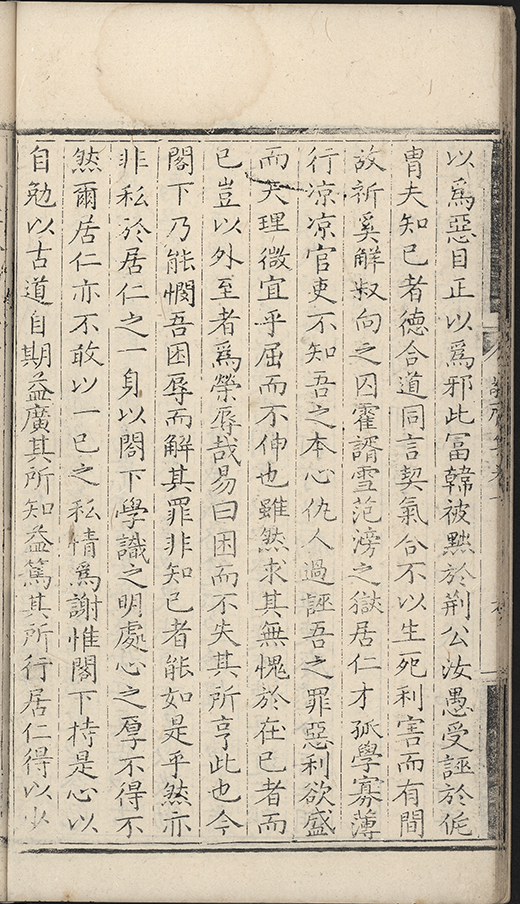 以爲惡目正以爲邪此冨韓被㸃於荆公汝愚受誣於侂
胄夫知已者德合道同言契氣合不以生死利害而有間
故祈奚觧叔向之囚霍諝雪范滂之獄居仁才孤學寡薄
行凉凉官吏不知吾之本心仇人過誣吾之罪惡利欲盛
而天理微宜乎屈而不伸也雖然求其無愧於在已者而
已豈以外至者爲榮辱哉易曰困而不失其所亨此也今
閣下乃能憫吾困辱而解其罪非知已者能如是乎然亦
非私於居仁之一身以閣下學識之明處心之厚不得不
然爾居仁亦不敢以一已之私情爲謝惟閣下持是心以
自勉以古道自期益廣其所知益篤其所行居仁得以少